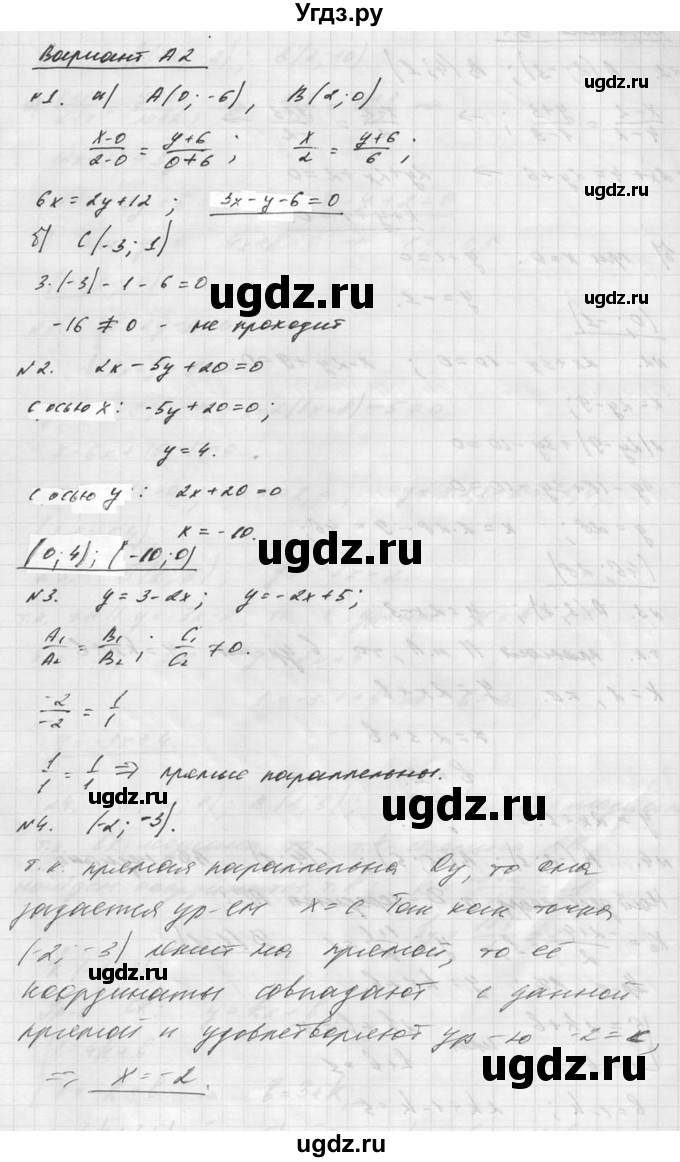 Угдз.ру
Вариант А2
№1. а) A(0; -6), B(2; 0)
x-0/2-0 = y+6/0+6; x/2 = y+6/6;
6x = 2y+12; 3x-y-6=0
б) C(-3; 1)
3·(-3) - 1 - 6 = 0
-16 ≠ 0 - не проходит
№2. 2x - 5y + 20 = 0
с осью x: -5y + 20 = 0;
y = 4.
с осью y: 2x + 20 = 0
x = -10.
(0; 4); (-10; 0)
№3. y = 3-2x; y = -2x+5;
A₁/A₂ = B₁/B₂; C₁/C₂ ≠ 0.
-2/-2 = 1/1
1/1 = 1/1 ⇒ прямые параллельны.
№4. (-2; -3).
т.к. прямая параллельна Oy, то она
задается ур-ем x=c. Так как точка
(-2; -3) лежит на прямой, то её
координаты совпадают с данной
прямой и удовлетворяют ур-ю -2=c,
⇒ x = -2.
ugdz.ru
ugdz.ru
ugdz.ru
ugdz.ru
ugdz.ru
ugdz.ru
ugdz.ru
ugdz.ru
ugdz.ru
ugdz.ru
ugdz.ru